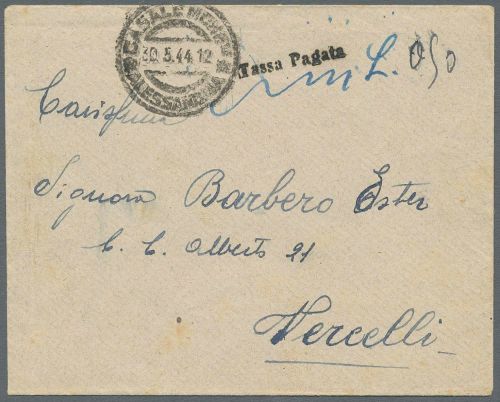 CASALE MONFERRATO
30.5.44.12
ALESSANDRIA
Tassa Pagata
L. 050
Signora Barbero Ester
C. C. Alberto 21
Vercelli